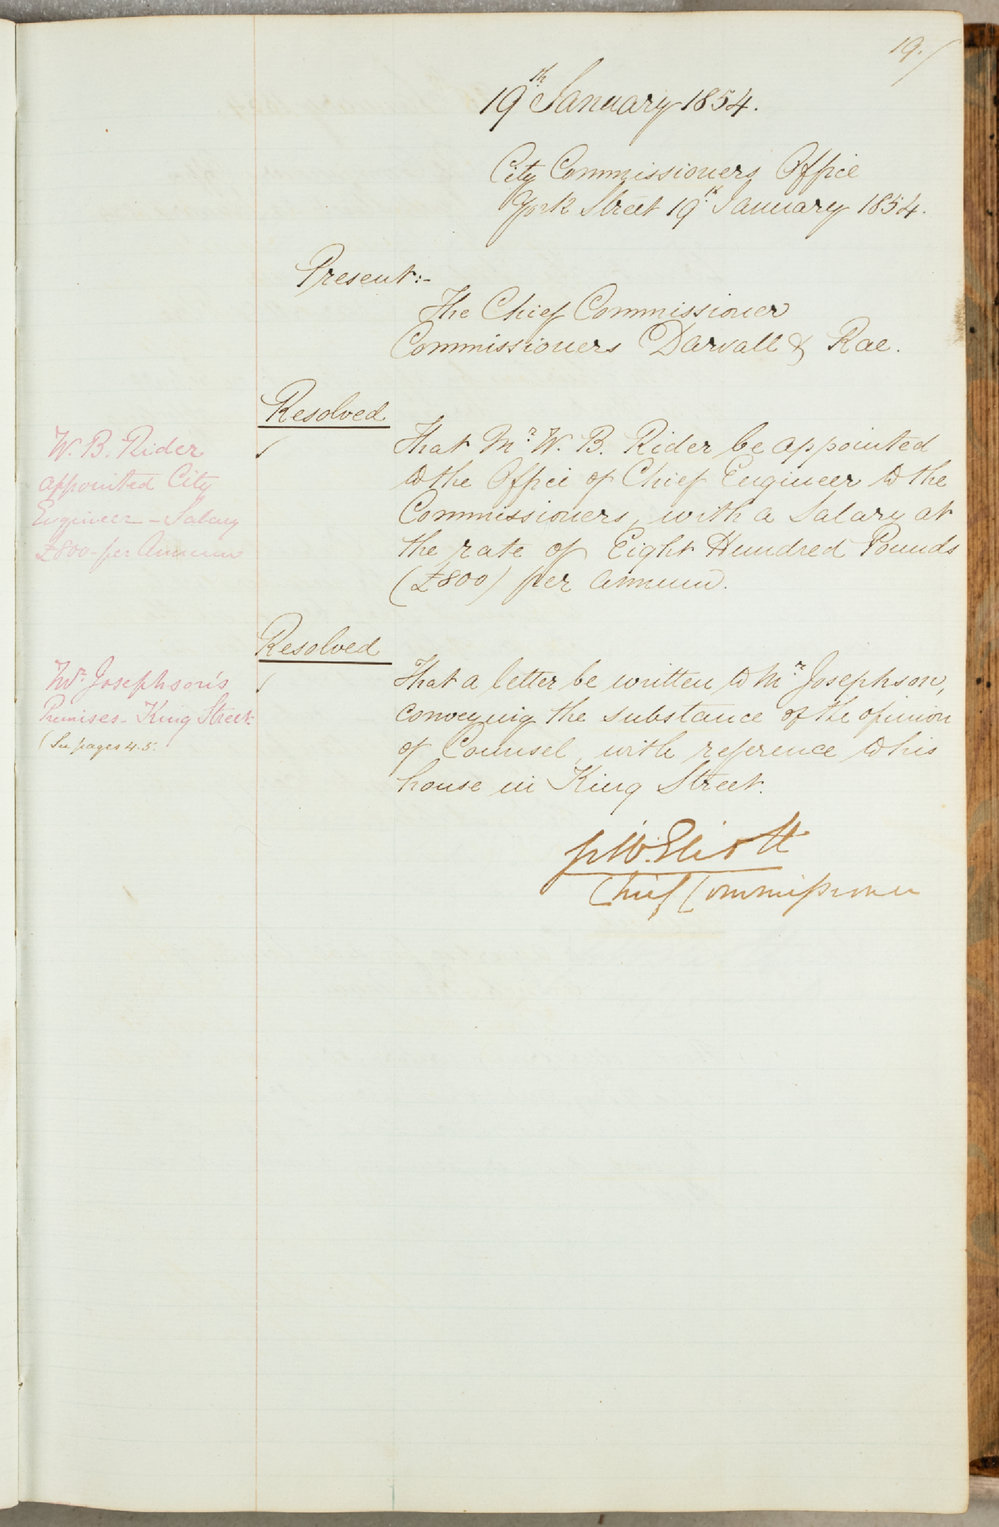 19./
19th January 1854.
City Commissioners Office
York Street 19th January 1854.
Present:-
The Chief Commissioner
Commissioners Darvall & Rae.
Resolved
W. B. Rider
appointed City
Engineer - Salary
£800 - per Annum
That Mr W. B. Rider be appointed
to the Office of Chief Engineer to the
Commissioners, with a Salary at
the rate of Eight Hundred Pounds
(£800) per annum.
Resolved
Mr Josephson's
Premises - King Street
(See pages 4.5.
That a letter be written to Mr Josephson,
conveying the substance of the opinion
of Counsel, with reference to his
house in King Street.
G W. Eliott
Chief Commissioner